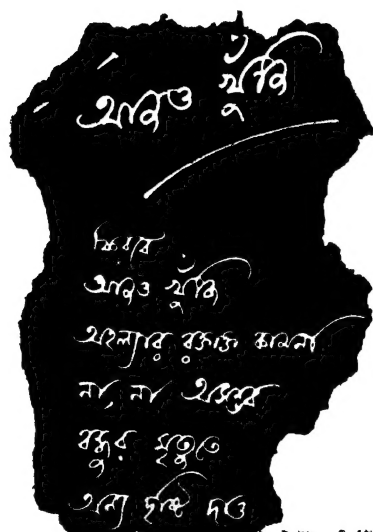 আরও খুঁজি
ফিরবে
আরও খুঁজি
অহল্যার রক্তাক্ত কামনা
না, না অসম্ভব
বন্ধুর মৃত্যুতে
অন্য দৃষ্টি দাও